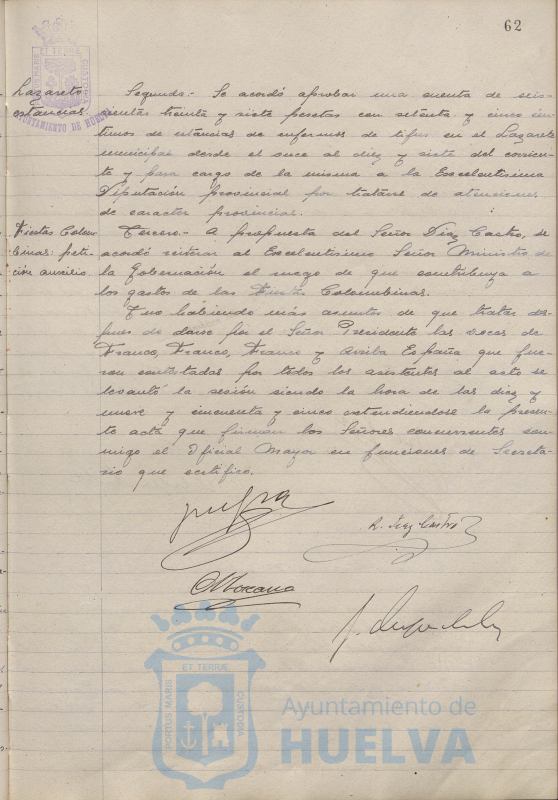 62
ET TERRAE
PORTUS MARIS
CUSTODIA
AYUNTAMIENTO DE HUELVA
Lazareto
estancias.
Segundo.- Se acordó aprobar una cuenta de seis-
cientas treinta y siete pesetas con setenta y cinco cén-
timos de estancias de enfermos de tifus en el Lazareto
municipal desde el once al diez y siete del corrien-
te y para cargo de la misma a la Excelentísima
Diputación provincial por tratarse de atenciones
de caracter provincial.
Fiestas Colom-
binas: peti-
ción auxilio.
Tercero.- A propuesta del Señor Díaz Castro, se
acordó reiterar al Excelentísimo Señor Ministro de
la Gobernación el ruego de que contribuya a
los gastos de las Fiestas Colombinas.
Y no habiendo más asuntos de que tratar des-
pues de darse por el Señor Presidente las voces de
Franco, Franco, Franco y Arriba España que fue-
ron contestadas por todos los asistentes al acto se
levantó la sesión siendo la hora de las diez y
nueve y cincuenta y cinco extendiendose la presen-
te acta que firman los Señores concurrentes con-
migo el Oficial Mayor en funciones de Secreta-
rio que certifico.
R. Diaz Castro
Moreno
ET TERRAE
PORTUS MARIS
CUSTODIA
Ayuntamiento de
HUELVA